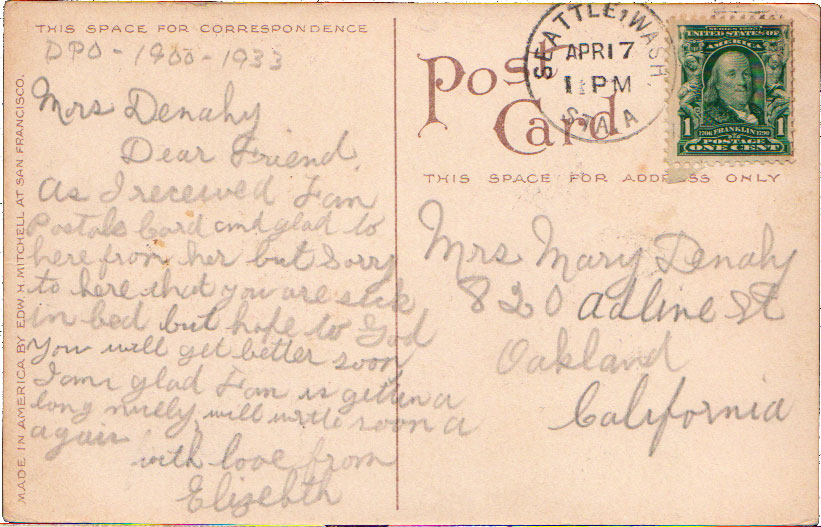 THIS SPACE FOR CORRESPONDENCE
DPO - 1900 - 1933
Mrs Denahy
Dear Friend,
As I received Fan
Postals Card and glad to
here from her but Sorry
to here that you are sick
in bed but hope to God
you will get better soon
I am glad Fan is gettin a
long nicely, will write soon a
again
with love from
Elizebth
MADE IN AMERICA BY EDW. H. MITCHELL AT SAN FRANCISCO.
Post
Card
SEATTLE, WASH.
APR 17
11 PM
STA. A
SERIES 1902
UNITED STATES OF
AMERICA
1706 FRANKLIN 1790
1
POSTAGE
ONE CENT
THIS SPACE FOR ADDRESS ONLY
Mrs Mary Denahy
820 Adline St
Oakland
California